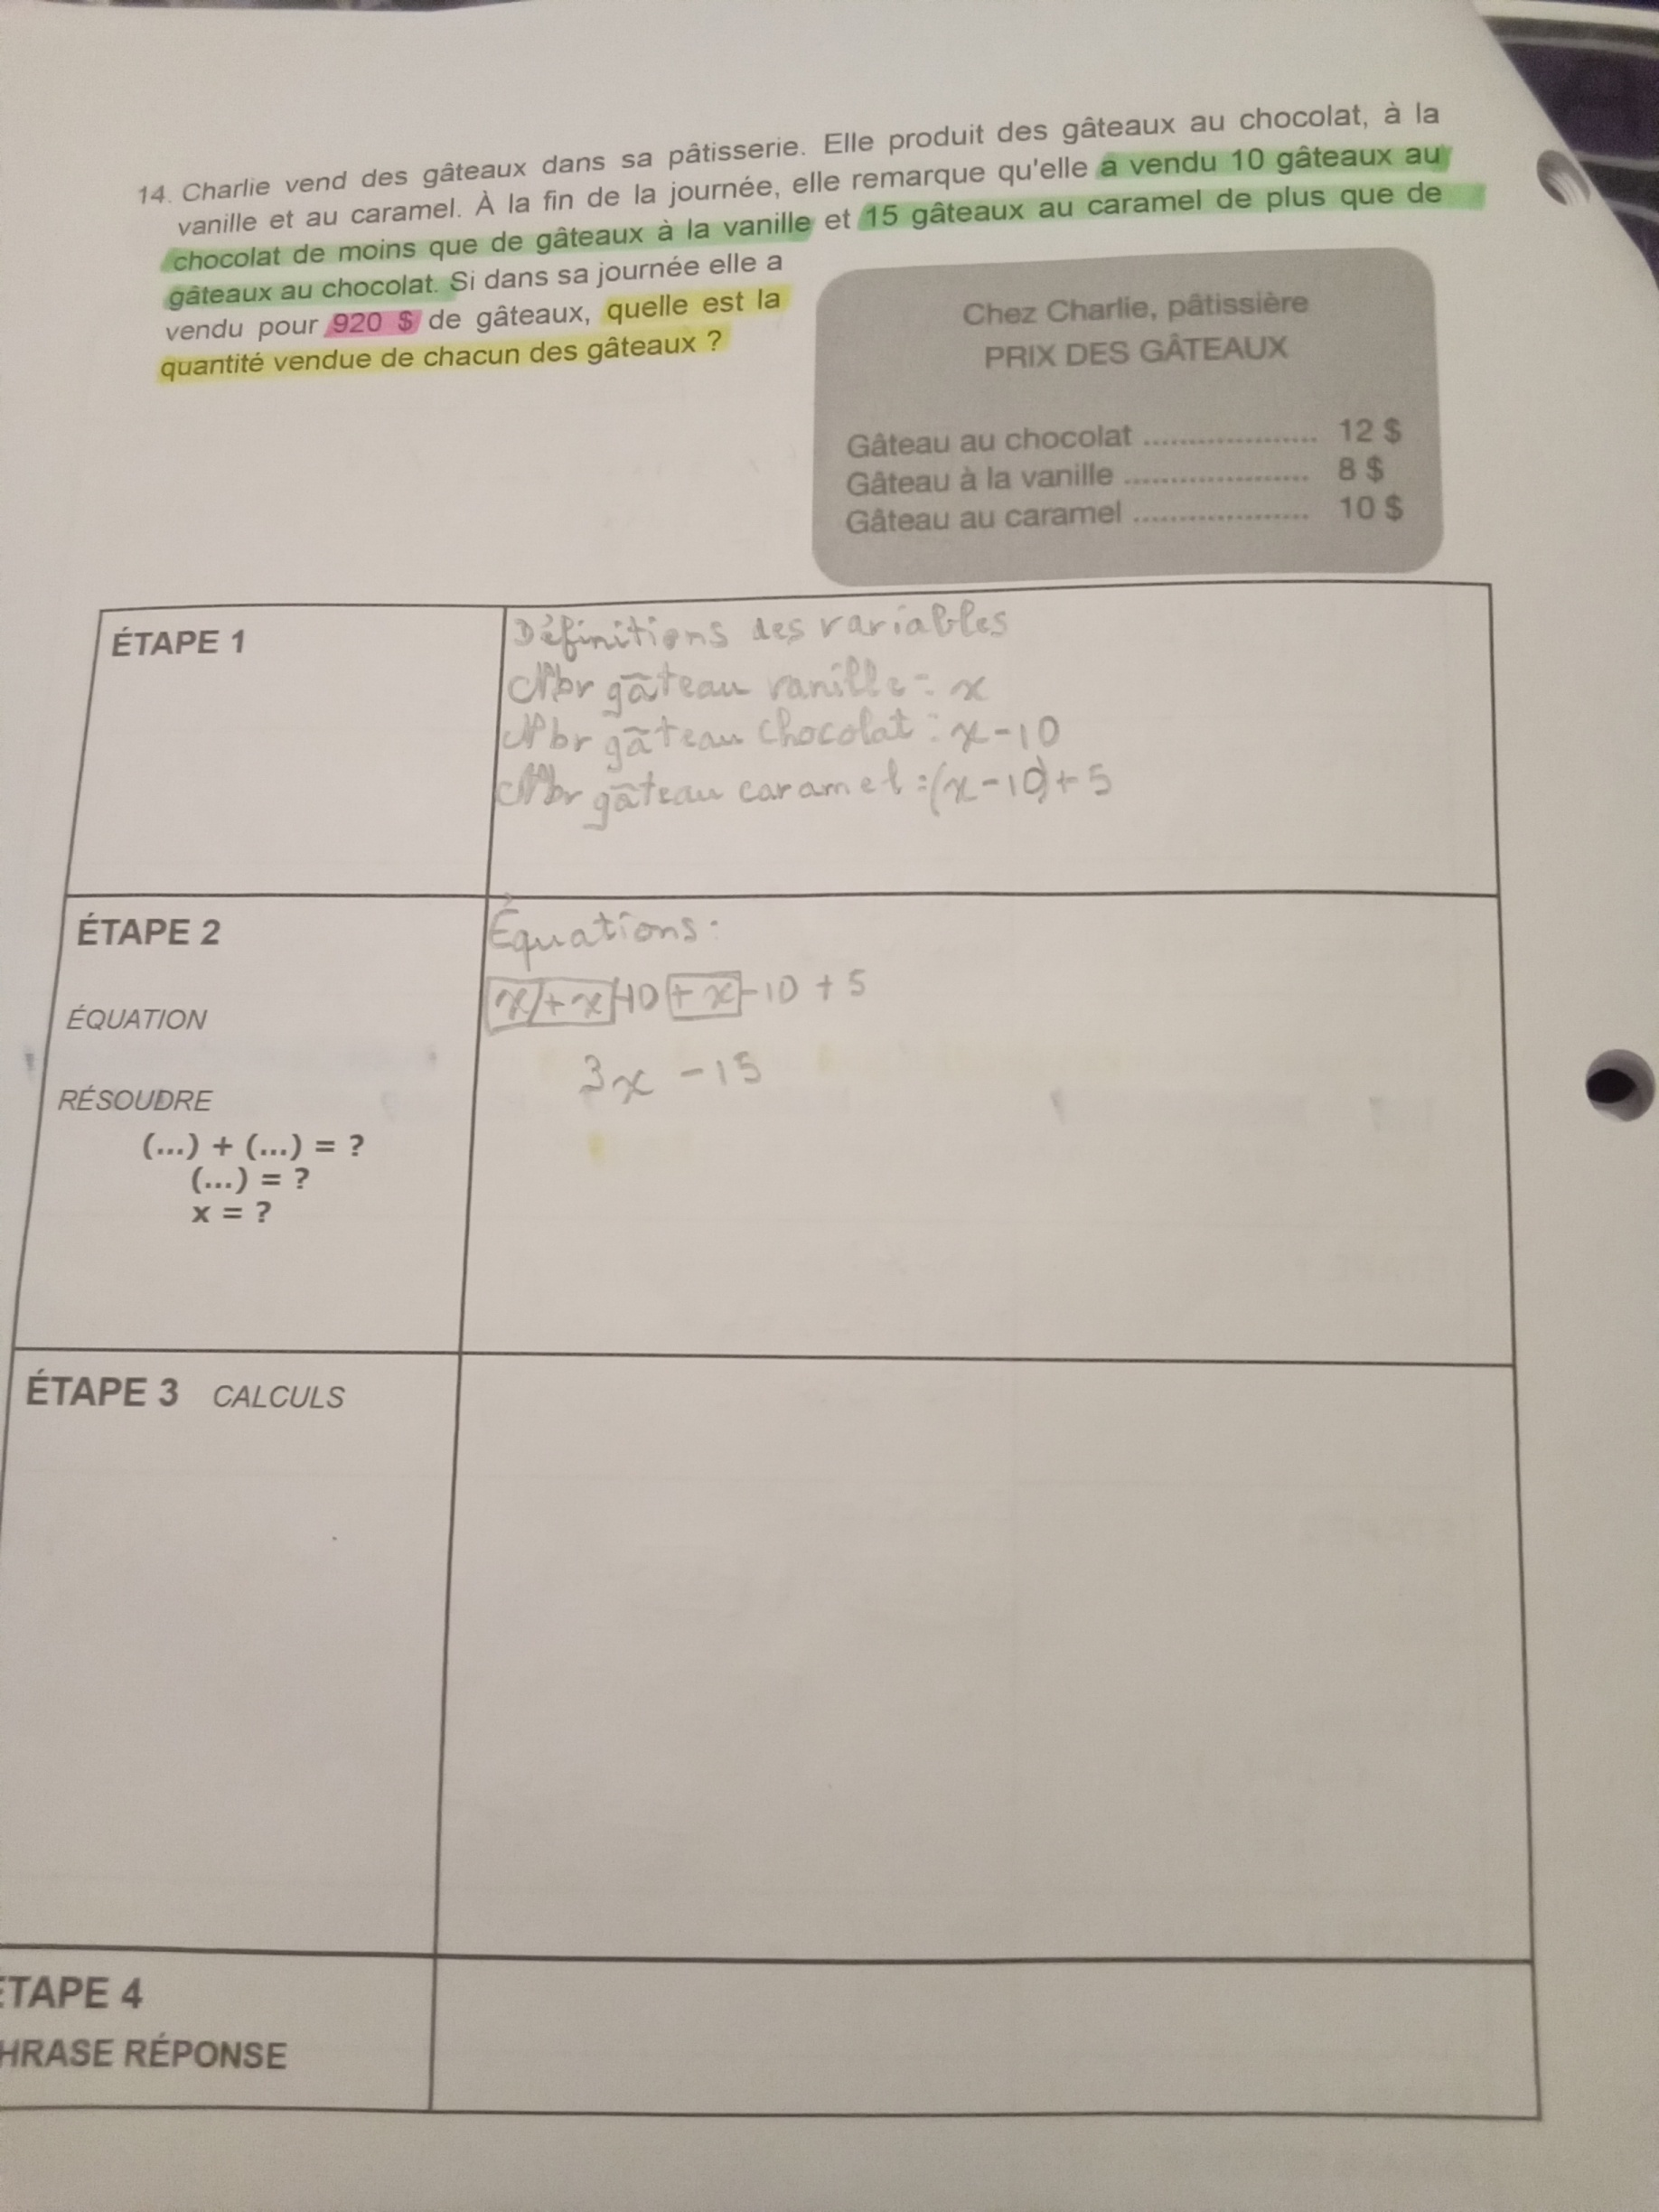 14. Charlie vend des gâteaux dans sa pâtisserie. Elle produit des gâteaux au chocolat, à la
vanille et au caramel. À la fin de la journée, elle remarque qu'elle a vendu 10 gâteaux au
chocolat de moins que de gâteaux à la vanille et 15 gâteaux au caramel de plus que de
gâteaux au chocolat. Si dans sa journée elle a
vendu pour 920 $ de gâteaux, quelle est la
quantité vendue de chacun des gâteaux ?
Chez Charlie, pâtissière
PRIX DES GÂTEAUX
Gâteau au chocolat .................... 12 $
Gâteau à la vanille .................... 8 $
Gâteau au caramel .................... 10 $
ÉTAPE 1
Définitions des variables
Nbr gâteau vanille = x
Nbr gâteau chocolat : x - 10
Nbr gâteau caramel : (x - 10) + 5
ÉTAPE 2
ÉQUATION
RÉSOUDRE
(...) + (...) = ?
(...) = ?
x = ?
Équations :
x + x - 10 + x - 10 + 5
3x - 15
ÉTAPE 3 CALCULS
ÉTAPE 4
HRASE RÉPONSE